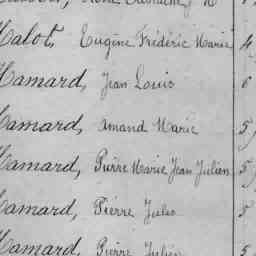 Malot, Eugène Frédéric Marie 4
Hamard, Jean Louis 6
Hamard, Amand Marie 5
Hamard, Pierre Marie Jean Julien 5
Hamard, Pierre Jules 5
Hamard, Pierre Julien 5